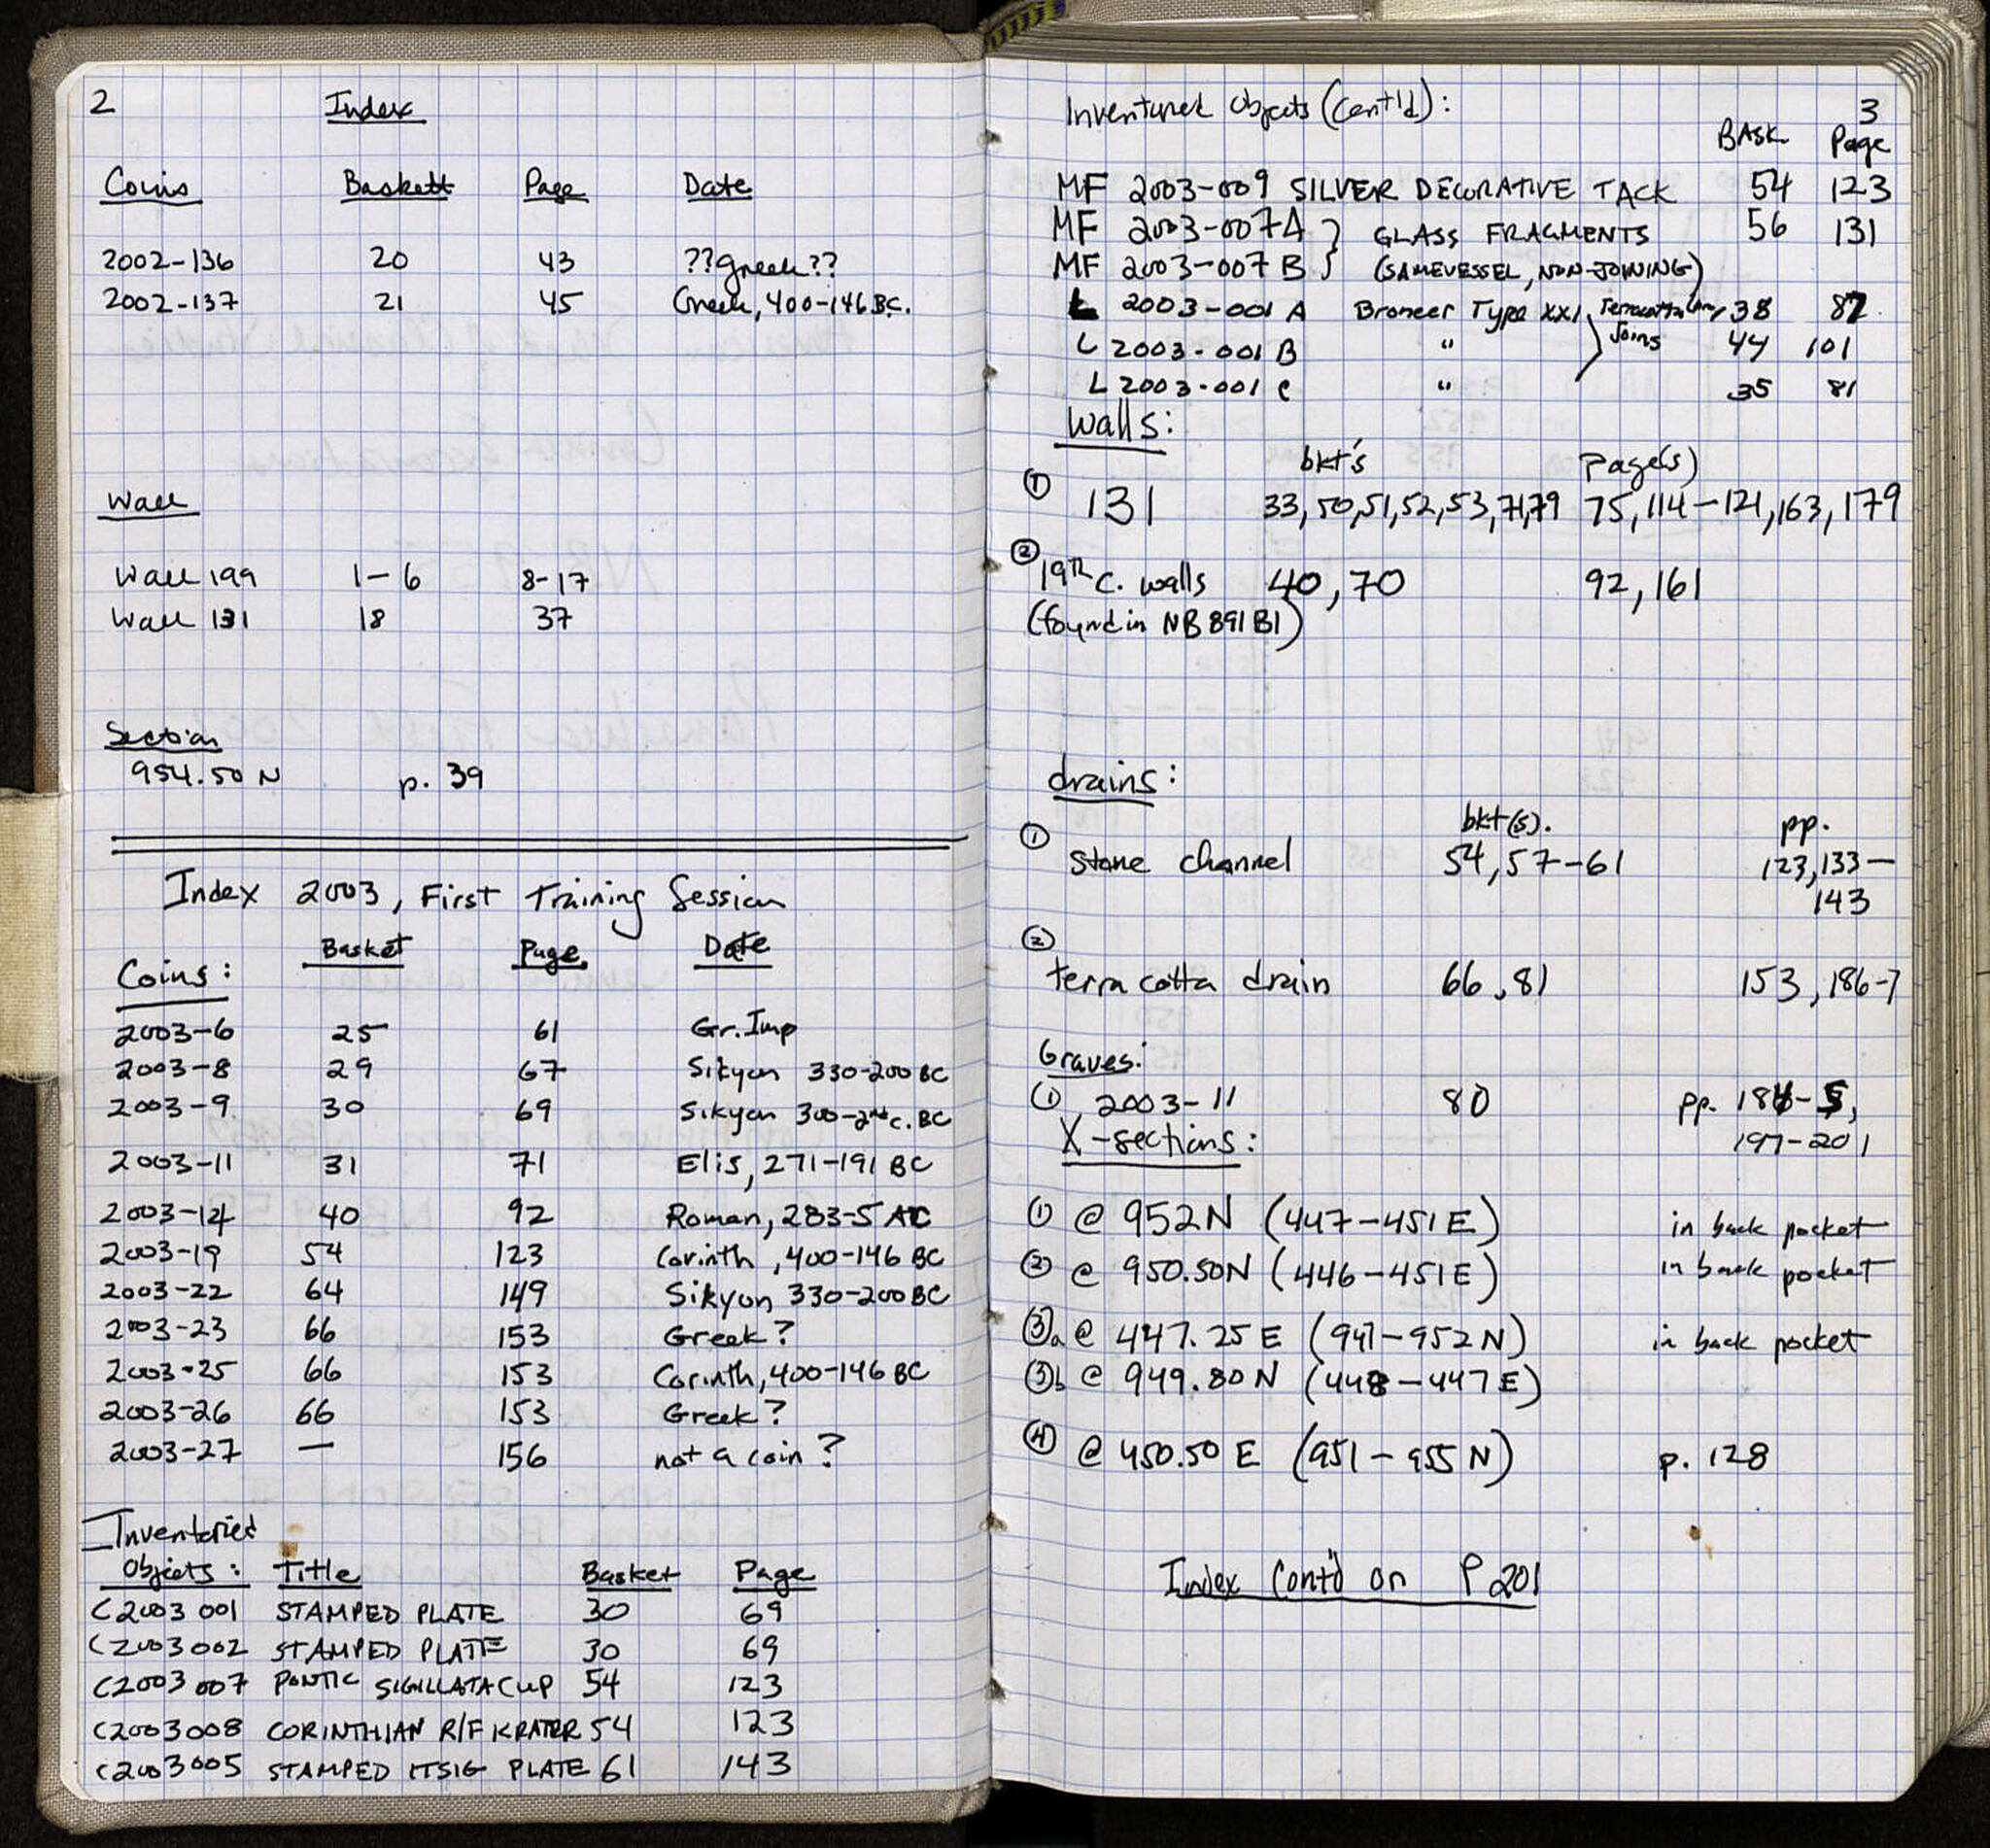 2
Index
Coins Baskett Page Date
2002-136 20 43 ??greek??
2002-137 21 45 Greek, 400-146 BC.
Wall
Wall 199 1-6 8-17
Wall 131 18 37
Section
954.50 N p. 39
Index 2003, First Training Session
Coins: Basket Page Date
2003-6 25 61 Gr. Imp
2003-8 29 67 Sikyon 330-200 BC
2003-9 30 69 Sikyon 300-2nd c. BC
2003-11 31 71 Elis, 271-191 BC
2003-14 40 92 Roman, 283-5 AC
2003-19 54 123 Corinth, 400-146 BC
2003-22 64 149 Sikyon 330-200 BC
2003-23 66 153 Greek?
2003-25 66 153 Corinth, 400-146 BC
2003-26 66 153 Greek?
2003-27 — 156 not a coin?
Inventoried
Objects: Title Basket Page
C2003 001 STAMPED PLATE 30 69
C2003 002 STAMPED PLATE 30 69
C2003 007 PONTIC SIGILLATA CUP 54 123
C2003 008 CORINTHIAN R/F KRATER 54 123
C2003 005 STAMPED ITSIG PLATE 61 143
3
Inventoried Objects (Cont'd): BASK Page
MF 2003-009 SILVER DECORATIVE TACK 54 123
MF 2003-007A } GLASS FRAGMENTS 56 131
MF 2003-007 B } (SAME VESSEL, NON-JOINING)
L 2003-001 A Broneer Type XXI, Terracotta Lamp 38 87
L 2003-001 B " Joins 44 101
L 2003-001 C " 35 81
Walls:
bkt's Page(s)
① 131 33, 50, 51, 52, 53, 71, 79 75, 114-121, 163, 179
② 19th c. walls 40, 70 92, 161
(found in NB 891 B1)
drains:
bkt(s). pp.
① stone channel 54, 57-61 123, 133-
143
② terra cotta drain 66, 81 153, 186-7
Graves:
① 2003-11 80 pp. 184-5,
197-201
X-sections:
① @ 952 N (447-451 E) in back pocket
② @ 950.50 N (446-451 E) in back pocket
③a @ 447.25 E (947-952 N) in back pocket
③b @ 949.80 N (448-447 E)
④ @ 450.50 E (951-955 N) p. 128
Index Cont'd on P 201